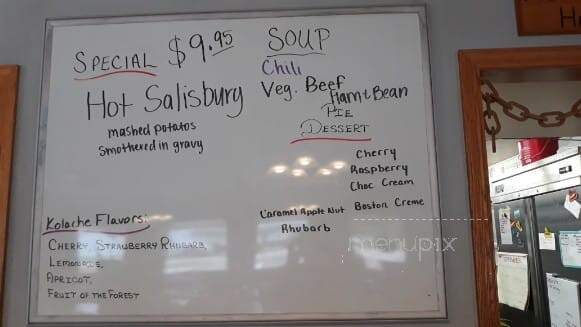 SPECIAL $9.95
Hot Salisbury
mashed potatos
Smothered in gravy
SOUP
Chili
Veg. Beef
Ham & Bean
PIE
DESSERT
Cherry
Raspberry
Choc Cream
Caramel Apple Nut
Boston Creme
Rhubarb
Kolache Flavors:
CHERRY, STRAWBERRY RHUBARB,
LEMONADE,
APRICOT,
FRUIT OF THE FOREST
menupix
H